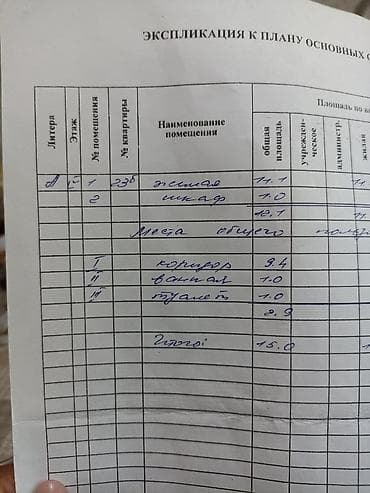 ЭКСПЛИКАЦИЯ К ПЛАНУ ОСНОВНЫХ
Площадь по
Литера Этаж № помещения № квартиры Наименование помещения общая площадь учрежден-ческое администр. жилая
А 1 23б жилая 11.1 11
2 шкаф 1.0
12.1 11
Места общего
I коридор
II ванная 1.0
III туалет 1.0
Итого: 15.0 1